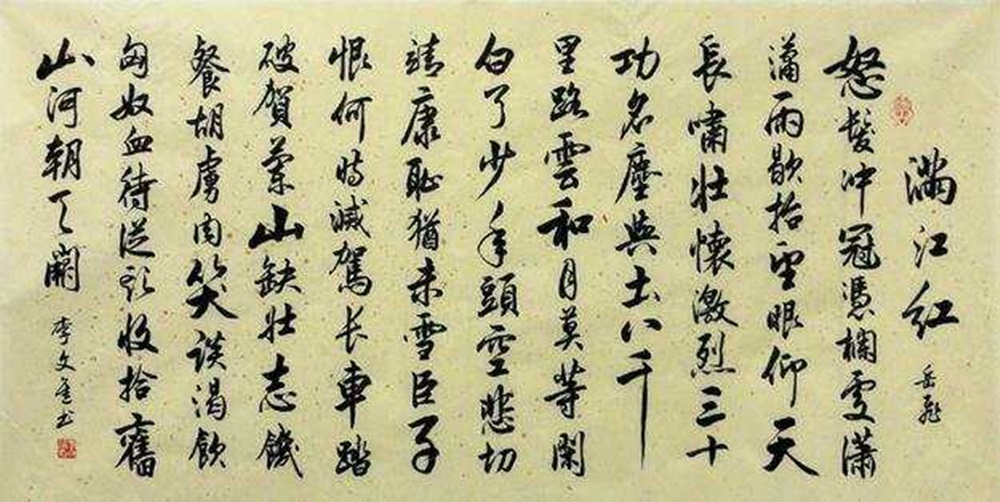 满江红 岳飛
怒髮冲冠憑欄處瀟
瀟雨歇抬望眼仰天
長嘯壮懷激烈三十
功名塵與土八千
里路雲和月莫等閑
白了少年頭空悲切
靖康恥猶未雪臣子
恨何時滅駕长車踏
破賀蘭山缺壮志饑
餐胡虜肉笑談渴飲
匈奴血待從頭收拾舊
山河朝天闕 李文金书